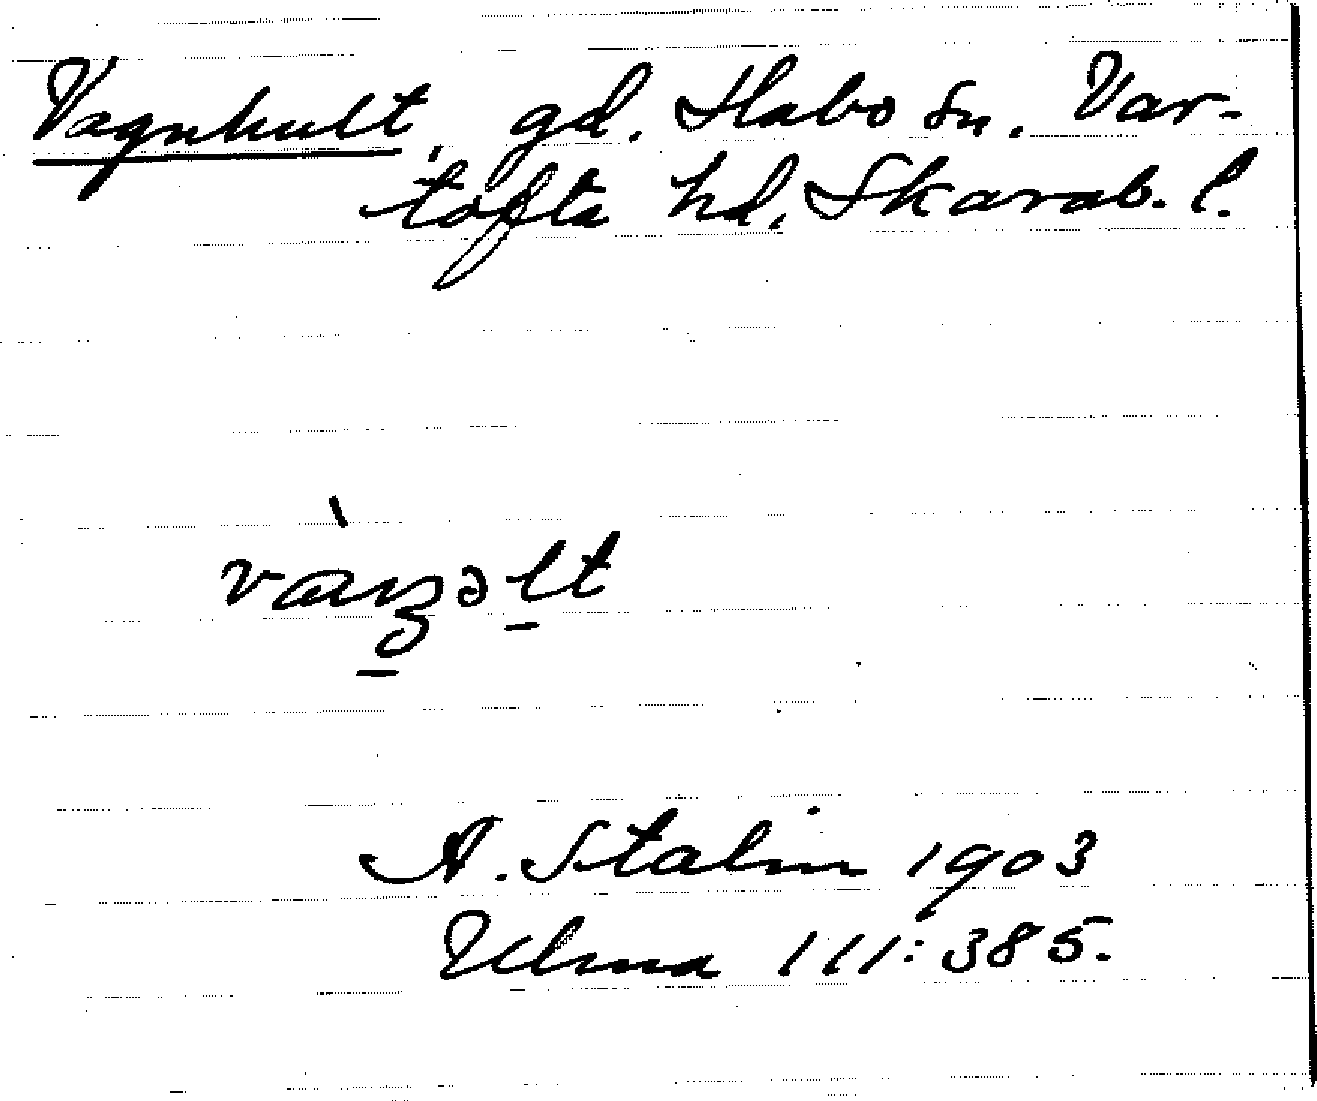 Vagnhult, gd. Habo sn. Var-
tofta hd, Skarab. l.
A. Stalin 1903
Ulma 111:385.